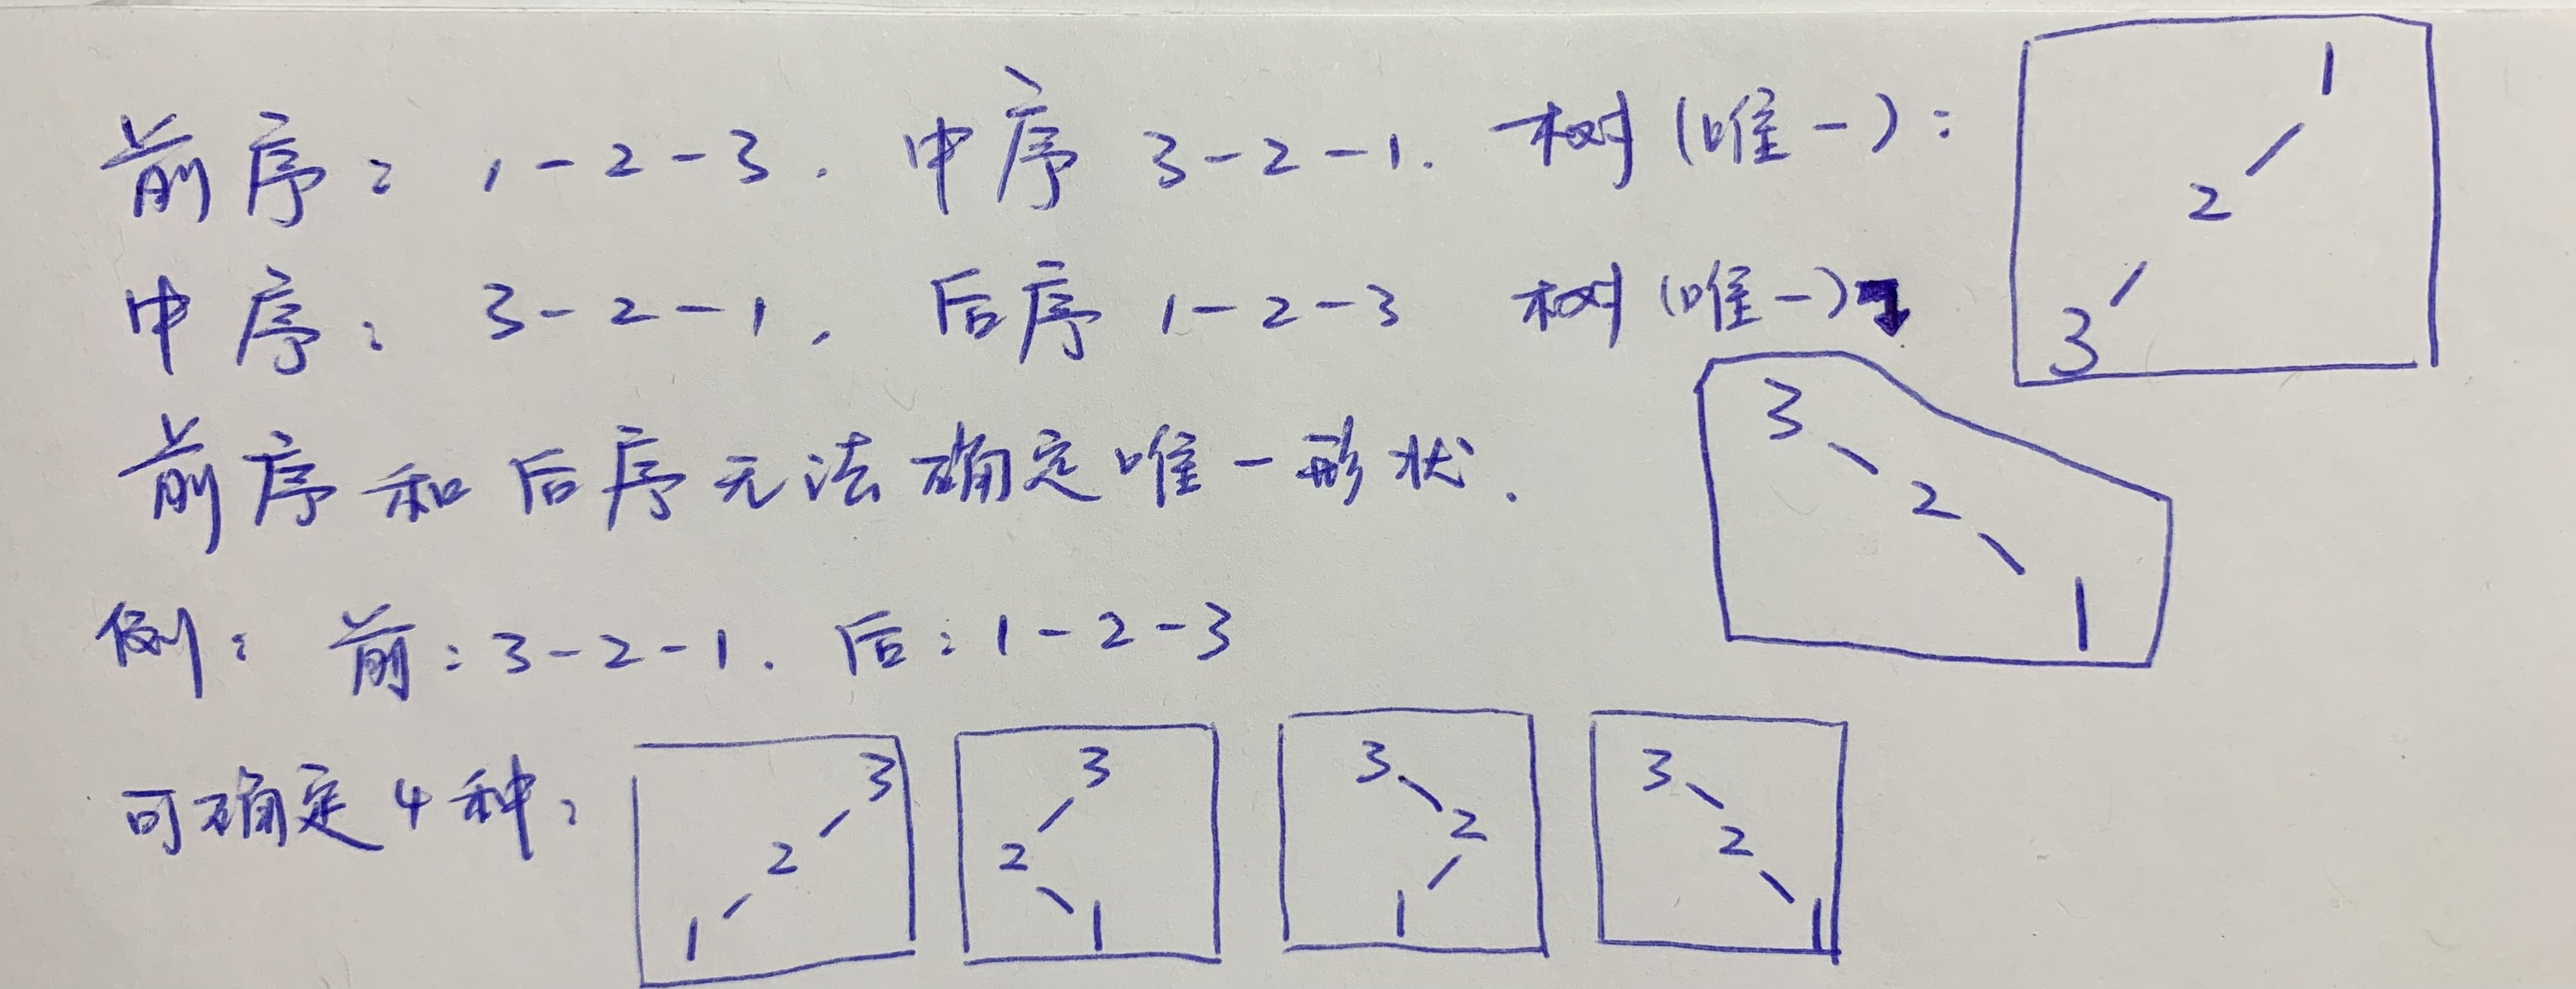 前序: 1-2-3. 中序 3-2-1. 树(唯一):
1
2
3
中序: 3-2-1, 后序 1-2-3 树(唯一)
3
2
1
前序和后序无法确定唯一形状.
例: 前: 3-2-1. 后: 1-2-3
可确定4种:
3
2
1
3
2
1
3
2
1
3
2
1